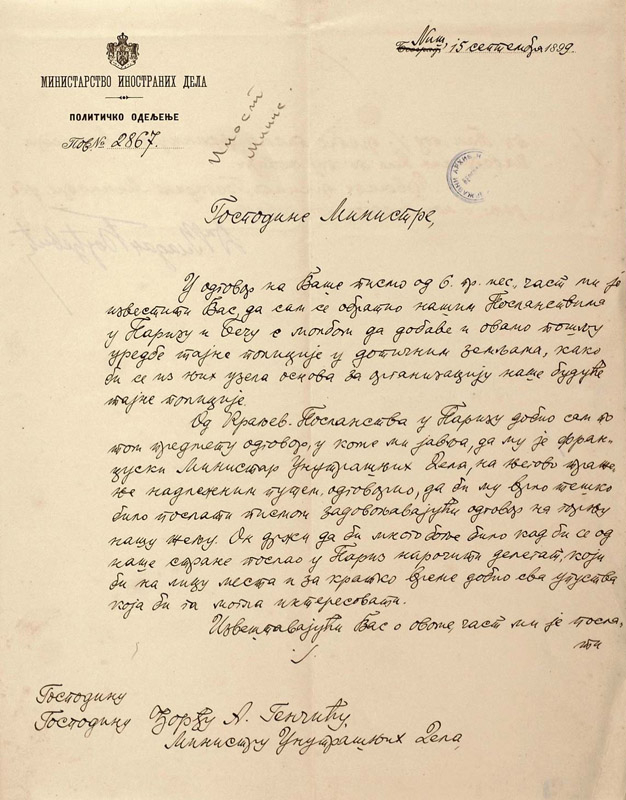 Ниш,
Београд, 15 септембра 1899.
МИНИСТАРСТВО ИНОСТРАНИХ ДЕЛА
ПОЛИТИЧКО ОДЕЉЕЊЕ
Пов№ 2867.
Господине Министре,
У одговор на Ваше писмо од 6. пр. мес., част ми је
известити Вас, да сам се обратио нашим Посланствима
у Паризу и Бечу с молбом да добаве и овамо пошљу
уредбе тајне полиције у дотичним земљама, како
би се из њих узела основа за организацију наше будуће
тајне полиције.
Од Краљев. Посланства у Паризу добио сам по
том предмету одговор, у коме ми јавља, да му је фран-
цуски Министар Унутрашњих Дела, на његово траже-
ње надлежним путем, одговорио, да би му врло тешко
било послати писмом задовољавајући одговор на горњу
нашу жељу. Он држи да би много боље било кад би се од
наше стране послао у Париз нарочити делегат, који
би на лицу места и за кратко време добио сва упуства
која би га могла интересовати.
Извештавајући Вас о овоме, част ми је посла-
ти
Господину
Господину Ђорђу А. Генчићу,
Министру Унутрашњих Дела